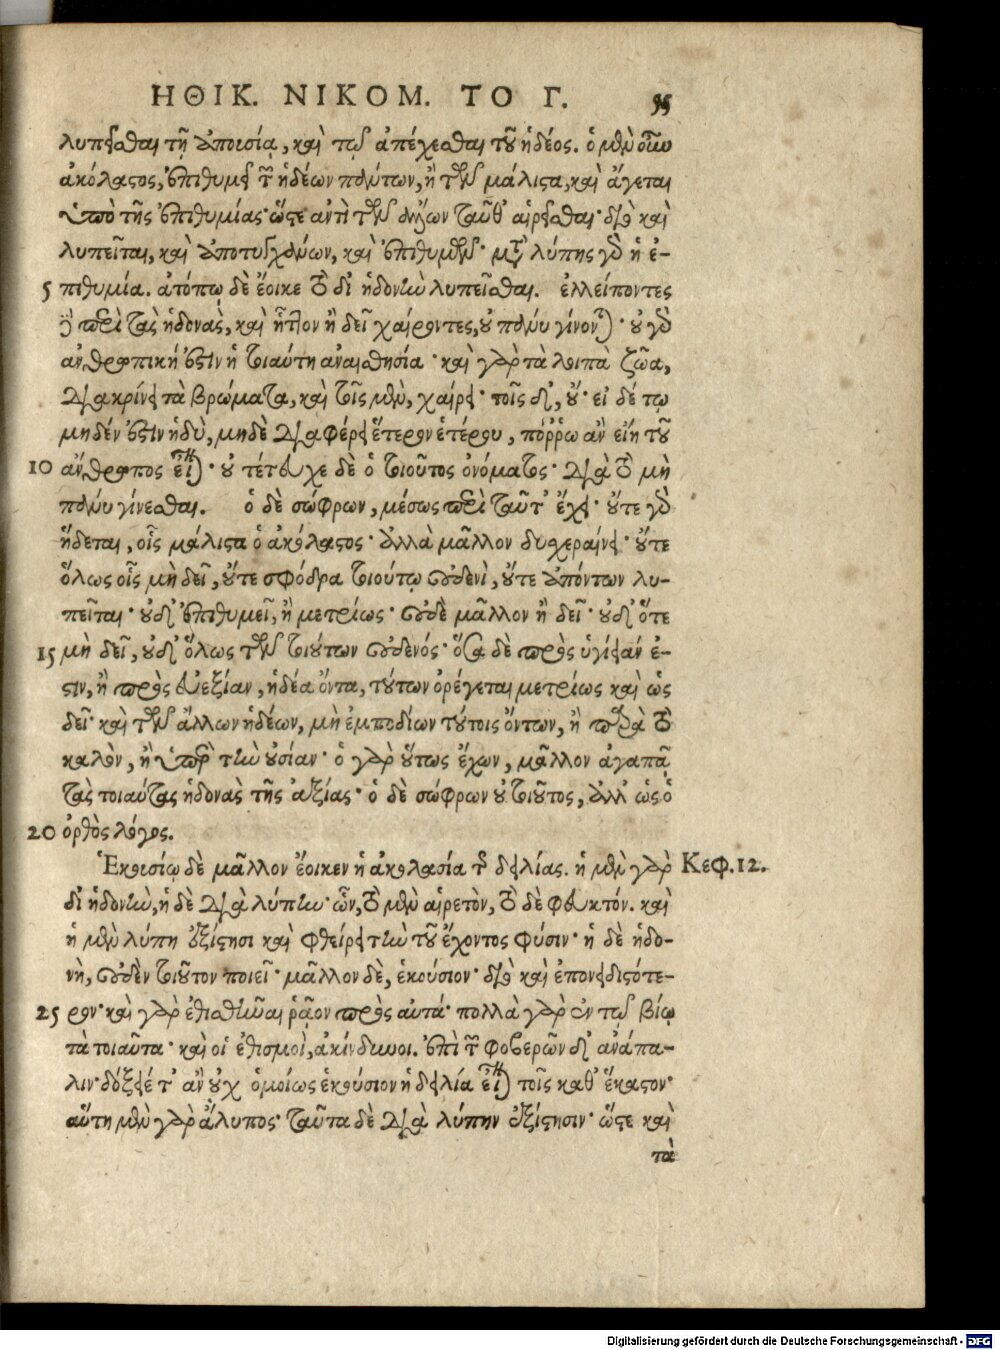 ΗΘΙΚ. ΝΙΚΟΜ. ΤΟ Γ. 55
λυπεῖσθαι τῇ ἀπουσίᾳ, καὶ τῷ ἀπέχεσθαι τοῦ ἡδέος. ὁ μὲν οὖν
ἀκόλαστος, ἐπιθυμεῖ τῶν ἡδέων πάντων, ἢ τῶν μάλιστα, καὶ ἄγεται
ὑπὸ τῆς ἐπιθυμίας· ὥστε ἀντὶ τῶν ἄλλων ταῦθ' αἱρεῖσθαι· διὸ καὶ
λυπεῖται, καὶ ἀποτυγχάνων, καὶ ἐπιθυμῶν· μετὰ λύπης γὰρ ἡ ἐ-
5 πιθυμία. ἀτόπῳ δὲ ἔοικε τὸ δι' ἡδονὴν λυπεῖσθαι. ἐλλείποντες
δὲ περὶ τὰς ἡδονὰς, καὶ ἧττον ἢ δεῖ χαίροντες, οὐ πάνυ γίνονται· οὐ γὰρ
ἀνθρωπική ἐστιν ἡ τοιαύτη ἀναισθησία· καὶ γὰρ τὰ λοιπὰ ζῶα,
διακρίνει τὰ βρώματα, καὶ τοῖς μὲν, χαίρει· τοῖς δ', οὔ· εἰ δέ τῳ
μηδέν ἐστιν ἡδὺ, μηδὲ διαφέρει ἕτερον ἑτέρου, πόρρω ἂν εἴη τοῦ
10 ἄνθρωπος εἶναι· οὐ τέτευχε δὲ ὁ τοιοῦτος ὀνόματος· διὰ τὸ μὴ
πάνυ γίνεσθαι. ὁ δὲ σώφρων, μέσως περὶ ταῦτ' ἔχει· οὔτε γὰρ
ἥδεται, οἷς μάλιστα ὁ ἀκόλαστος· ἀλλὰ μᾶλλον δυσχεραίνει· οὔτε
ὅλως οἷς μὴ δεῖ, οὔτε σφόδρα τοιούτῳ οὐδενὶ, οὔτε ἀπόντων λυ-
πεῖται· οὐδ' ἐπιθυμεῖ, ἢ μετρίως· οὐδὲ μᾶλλον ἢ δεῖ· οὐδ' ὅτε
15 μὴ δεῖ, οὐδ' ὅλως τῶν τοιούτων οὐδενός· ὅσα δὲ πρὸς ὑγίειάν ἐ-
στιν, ἢ πρὸς εὐεξίαν, ἡδέα ὄντα, τούτων ὀρέγεται μετρίως καὶ ὡς
δεῖ· καὶ τῶν ἄλλων ἡδέων, μὴ ἐμποδίων τούτοις ὄντων, ἢ παρὰ τὸ
καλὸν, ἢ ὑπὲρ τὴν οὐσίαν· ὁ γὰρ οὕτως ἔχων, μᾶλλον ἀγαπᾷ
τὰς τοιαύτας ἡδονὰς τῆς ἀξίας· ὁ δὲ σώφρων οὐ τοιοῦτος, ἀλλ' ὡς ὁ
20 ὀρθὸς λόγος.
Ἑκουσίῳ δὲ μᾶλλον ἔοικεν ἡ ἀκολασία τῆς δειλίας. ἡ μὲν γὰρ Κεφ. 12.
δι' ἡδονὴν, ἡ δὲ διὰ λύπην· ὧν, τὸ μὲν αἱρετὸν, τὸ δὲ φευκτόν. καὶ
ἡ μὲν λύπη ἐξίστησι καὶ φθείρει τὴν τοῦ ἔχοντος φύσιν· ἡ δὲ ἡδο-
νὴ, οὐδὲν τοιοῦτον ποιεῖ· μᾶλλον δὲ, ἑκούσιον· διὸ καὶ ἐπονειδιστότε-
25 ρον· καὶ γὰρ ἐθισθῆναι ῥᾷον πρὸς αὐτά· πολλὰ γὰρ ἐν τῷ βίῳ
τὰ τοιαῦτα· καὶ οἱ ἐθισμοὶ, ἀκίνδυνοι. ἐπὶ τῶν φοβερῶν δ' ἀνάπα-
λιν· δόξειέ τ' ἂν οὐχ ὁμοίως ἑκούσιον ἡ δειλία εἶναι τοῖς καθ' ἕκαστον·
αὕτη μὲν γὰρ ἄλυπος· ταῦτα δὲ διὰ λύπην ἐξίστησιν· ὥστε καὶ
τὰ
Digitalisierung gefördert durch die Deutsche Forschungsgemeinschaft - DFG